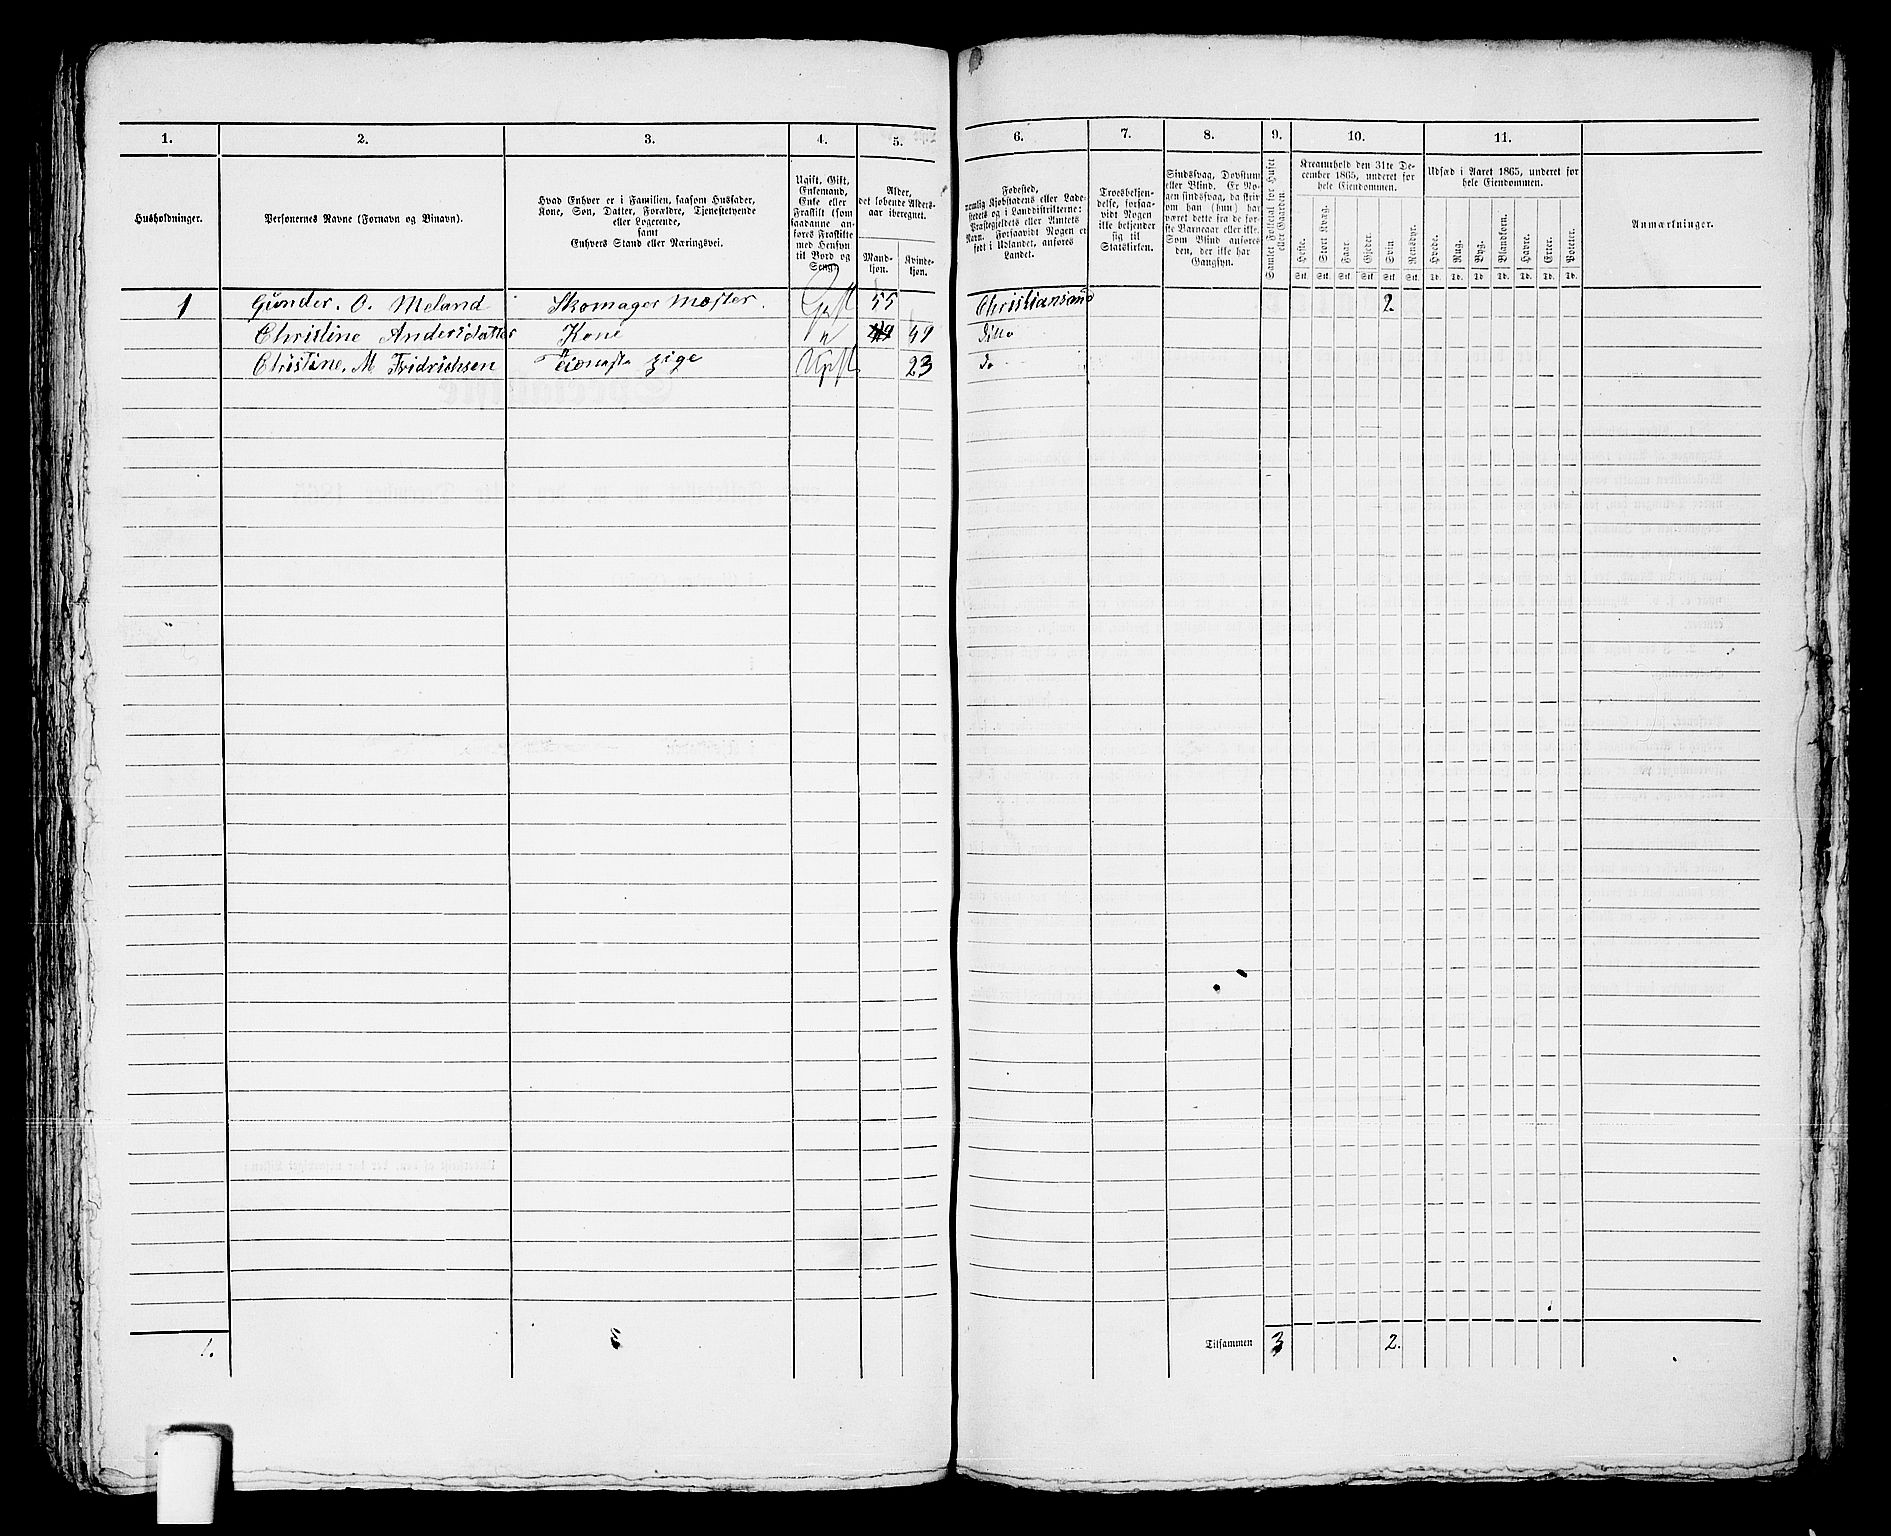 1. 2. 3. 4. 5. 6. 7. 8. 9. 10. 11.
Husholdninger.
Personernes Navne (Fornavn og Binavn).
Hvad Enhver er i Familien, saasom Husfader,
Kone, Søn, Datter, Forældre, Tjenestetyende
eller Logerende,
samt
Enhvers Stand eller Næringsvei.
Ugift, Gift,
Enkemand,
Enke eller
Fraskilt (som
saadanne an-
føres Fraskilte
med Hensyn
til Bord og
Seng).
Alder,
det løbende Alders-
aar iberegnet.
Mand-
kjøn.
Kvinde-
kjøn.
Fødested,
nemlig Kjøbstadens eller Lade-
stedets og i Landdistrikterne:
Præstegjeldets eller Amtets
Navn. Forsaavidt Nogen er
født i Udlandet, anføres
Landet.
Troesbekjen-
delse, forsaa-
vidt Nogen
ikke bekjender
sig til
Statskirken.
Sindssvag, Døvstum
eller Blind. Er No-
gen sindssvag, da skriv
om han (hun) har
været dette fra de før-
ste Barneaar eller ikke.
Som Blind anføres
den, der ikke har
Gangsyn.
Samlet Folketal for Huset
eller Gaarden.
Kreaturhold den 31te De-
cember 1865, underet for
hele Eiendommen.
Heste. Stort Kvæg. Faar. Gjeder. Svin. Rensdyr.
Stk. Stk. Stk. Stk. Stk. Stk.
Udsæd i Aaret 1865, underet for
hele Eiendommen.
Hvede. Rug. Byg. Blandkorn. Havre. Erter. Poteter.
Td. Td. Td. Td. Td. Td. Td.
Anmærkninger.
1 Gunder. O. Meland Skomager Mæster. Gift 55 Christiansand 2.
Christine Andersdatter Kone " 49 Ditto
Christine. M Fridrichsen pige Ugift 23 Do
1. 3 Tilsammen 3 2.